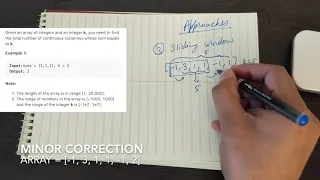 Given an array of integers and an integer k, you need to find
the total number of continuous subarrays whose sum equals
to k.
Example 1:
Input:nums = [1,1,1], k = 2
Output: 2
Note:
1. The length of the array is in range [1, 20,000].
2. The range of numbers in the array is [-1000, 1000]
and the range of the integer k is [-1e7, 1e7].
Approaches
③ Sliding window
5
[-1, 3, 1, 1, -1, 1]
5
MINOR CORRECTION
ARRAY = [-1, 3, 1, 1, -1, 2]